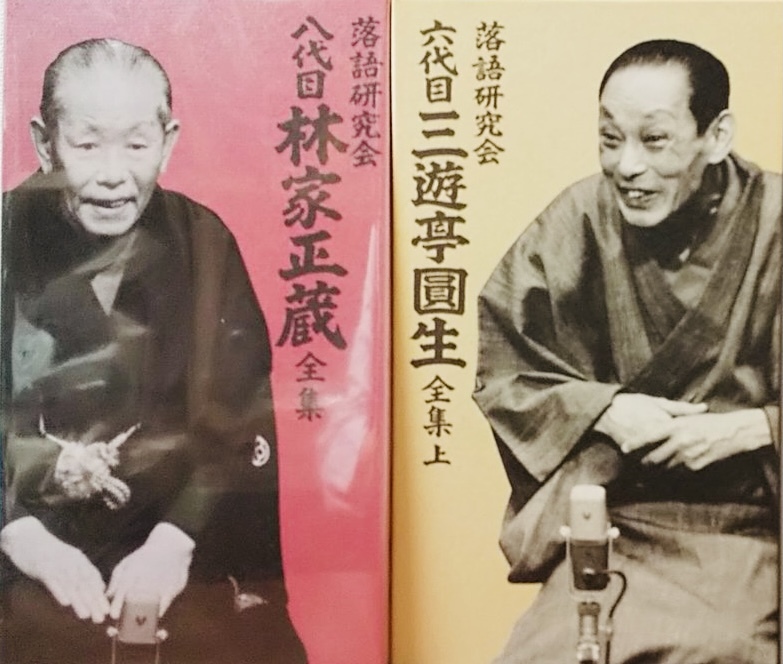 落語研究会
八代目 林家正蔵 全集
落語研究会
六代目 三遊亭圓生 全集 上